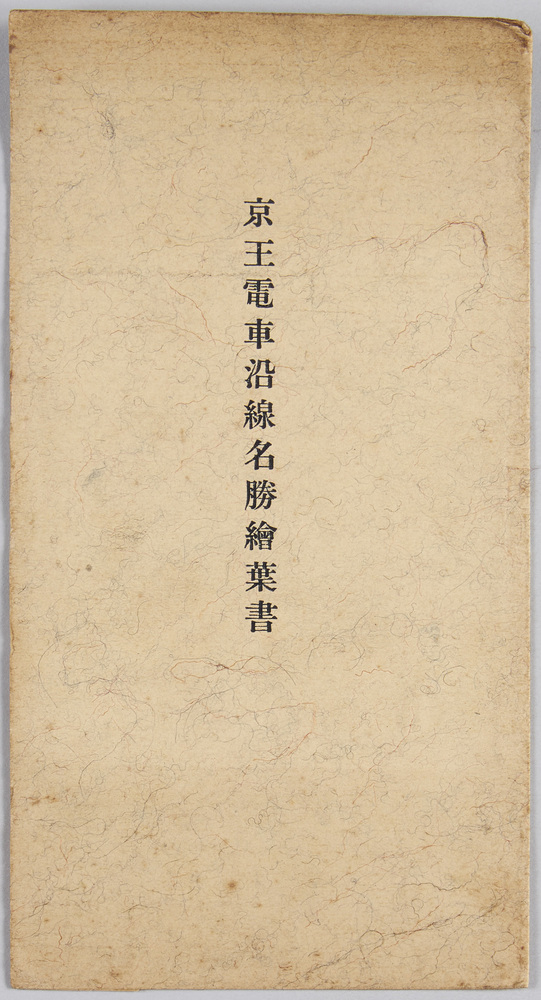 京王電車沿線名勝繪葉書